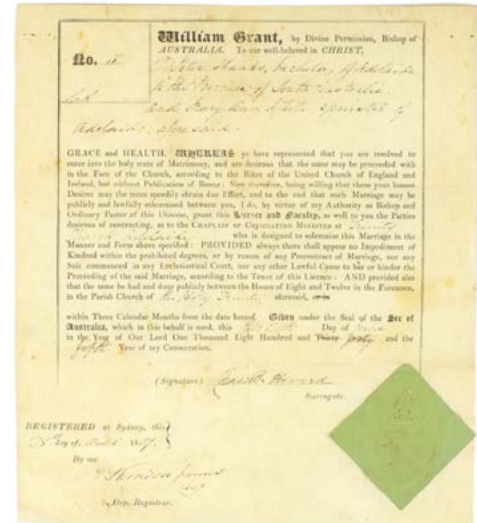 William Grant, by Divine Permission, Bishop of
AUSTRALIA. To our well-beloved in CHRIST,
No.
Peter Shanks, bachelor, of Adelaide
in the Province of South Australia
and Mary Ann spinster of
Adelaide, aforesaid.
GRACE and HEALTH. WHEREAS ye have represented that you are resolved to
enter into the holy state of Matrimony, and are desirous that the same may be proceeded with
in the Face of the Church, according to the Rites of the United Church of England and
Ireland, but without Publication of Banns: Now therefore, being willing that these your honest
Desires may the more speedily obtain due Effect, and to the end that such Marriage may be
publicly and lawfully solemnized between you, I do, by virtue of my Authority as Bishop and
Ordinary Pastor of this Diocese, grant this Licence and Faculty, as well to you the Parties
desirous of contracting, as to the CHAPLAIN or OFFICIATING MINISTER of Trinity
Church Adelaide who is designed to solemnize this Marriage in the
Manner and Form above specified: PROVIDED always there shall appear no Impediment of
Kindred within the prohibited degrees, or by reason of any Precontract of Marriage, nor any
Suit commenced in any Ecclesiastical Court, nor any other Lawful Cause to bar or hinder the
Proceeding of the said Marriage, according to the Tenor of this Licence: AND provided also
that the same be had and done publicly between the Hours of Eight and Twelve in the Forenoon,
in the Parish Church of the Holy Trinity aforesaid, or in
within Three Calendar Months from the date hereof. Given under the Seal of the See of
Australia, which in this behalf is used, this Day of
in the Year of Our Lord One Thousand Eight Hundred and Thirty forty and the
fifth Year of my Consecration.
(Signature) Chas B Howard
Surrogate.
REGISTERED at Sydney, this
Day of 18
By me
James
Dep. Registrar.